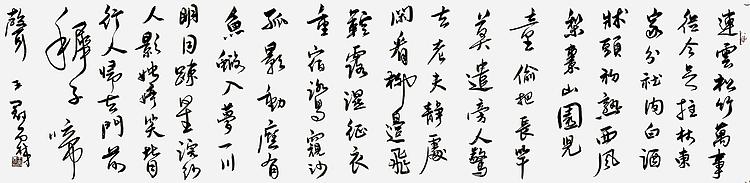 連雲松竹萬事
從今足拄杖東
家分社肉白酒
牀頭初熟西風
梨棗山園兒
童偷把長竿
莫遣旁人驚
去老夫靜處
閑看柳邊飛
鞚露濕征衣
重宿鷺窺沙
孤影動應有
魚蝦入夢一川
明月疎星浣紗
人影娉婷笑背
行人歸去門前
稚子啼
聲